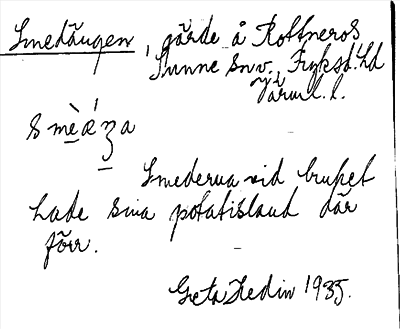 Smedängen, gärde å Rottneros
Sunne sn v., Fryksd. hd
Värml. l.
Smederna vid bruket
hade sina potatisland där
förr.
Greta Hedin 1935.